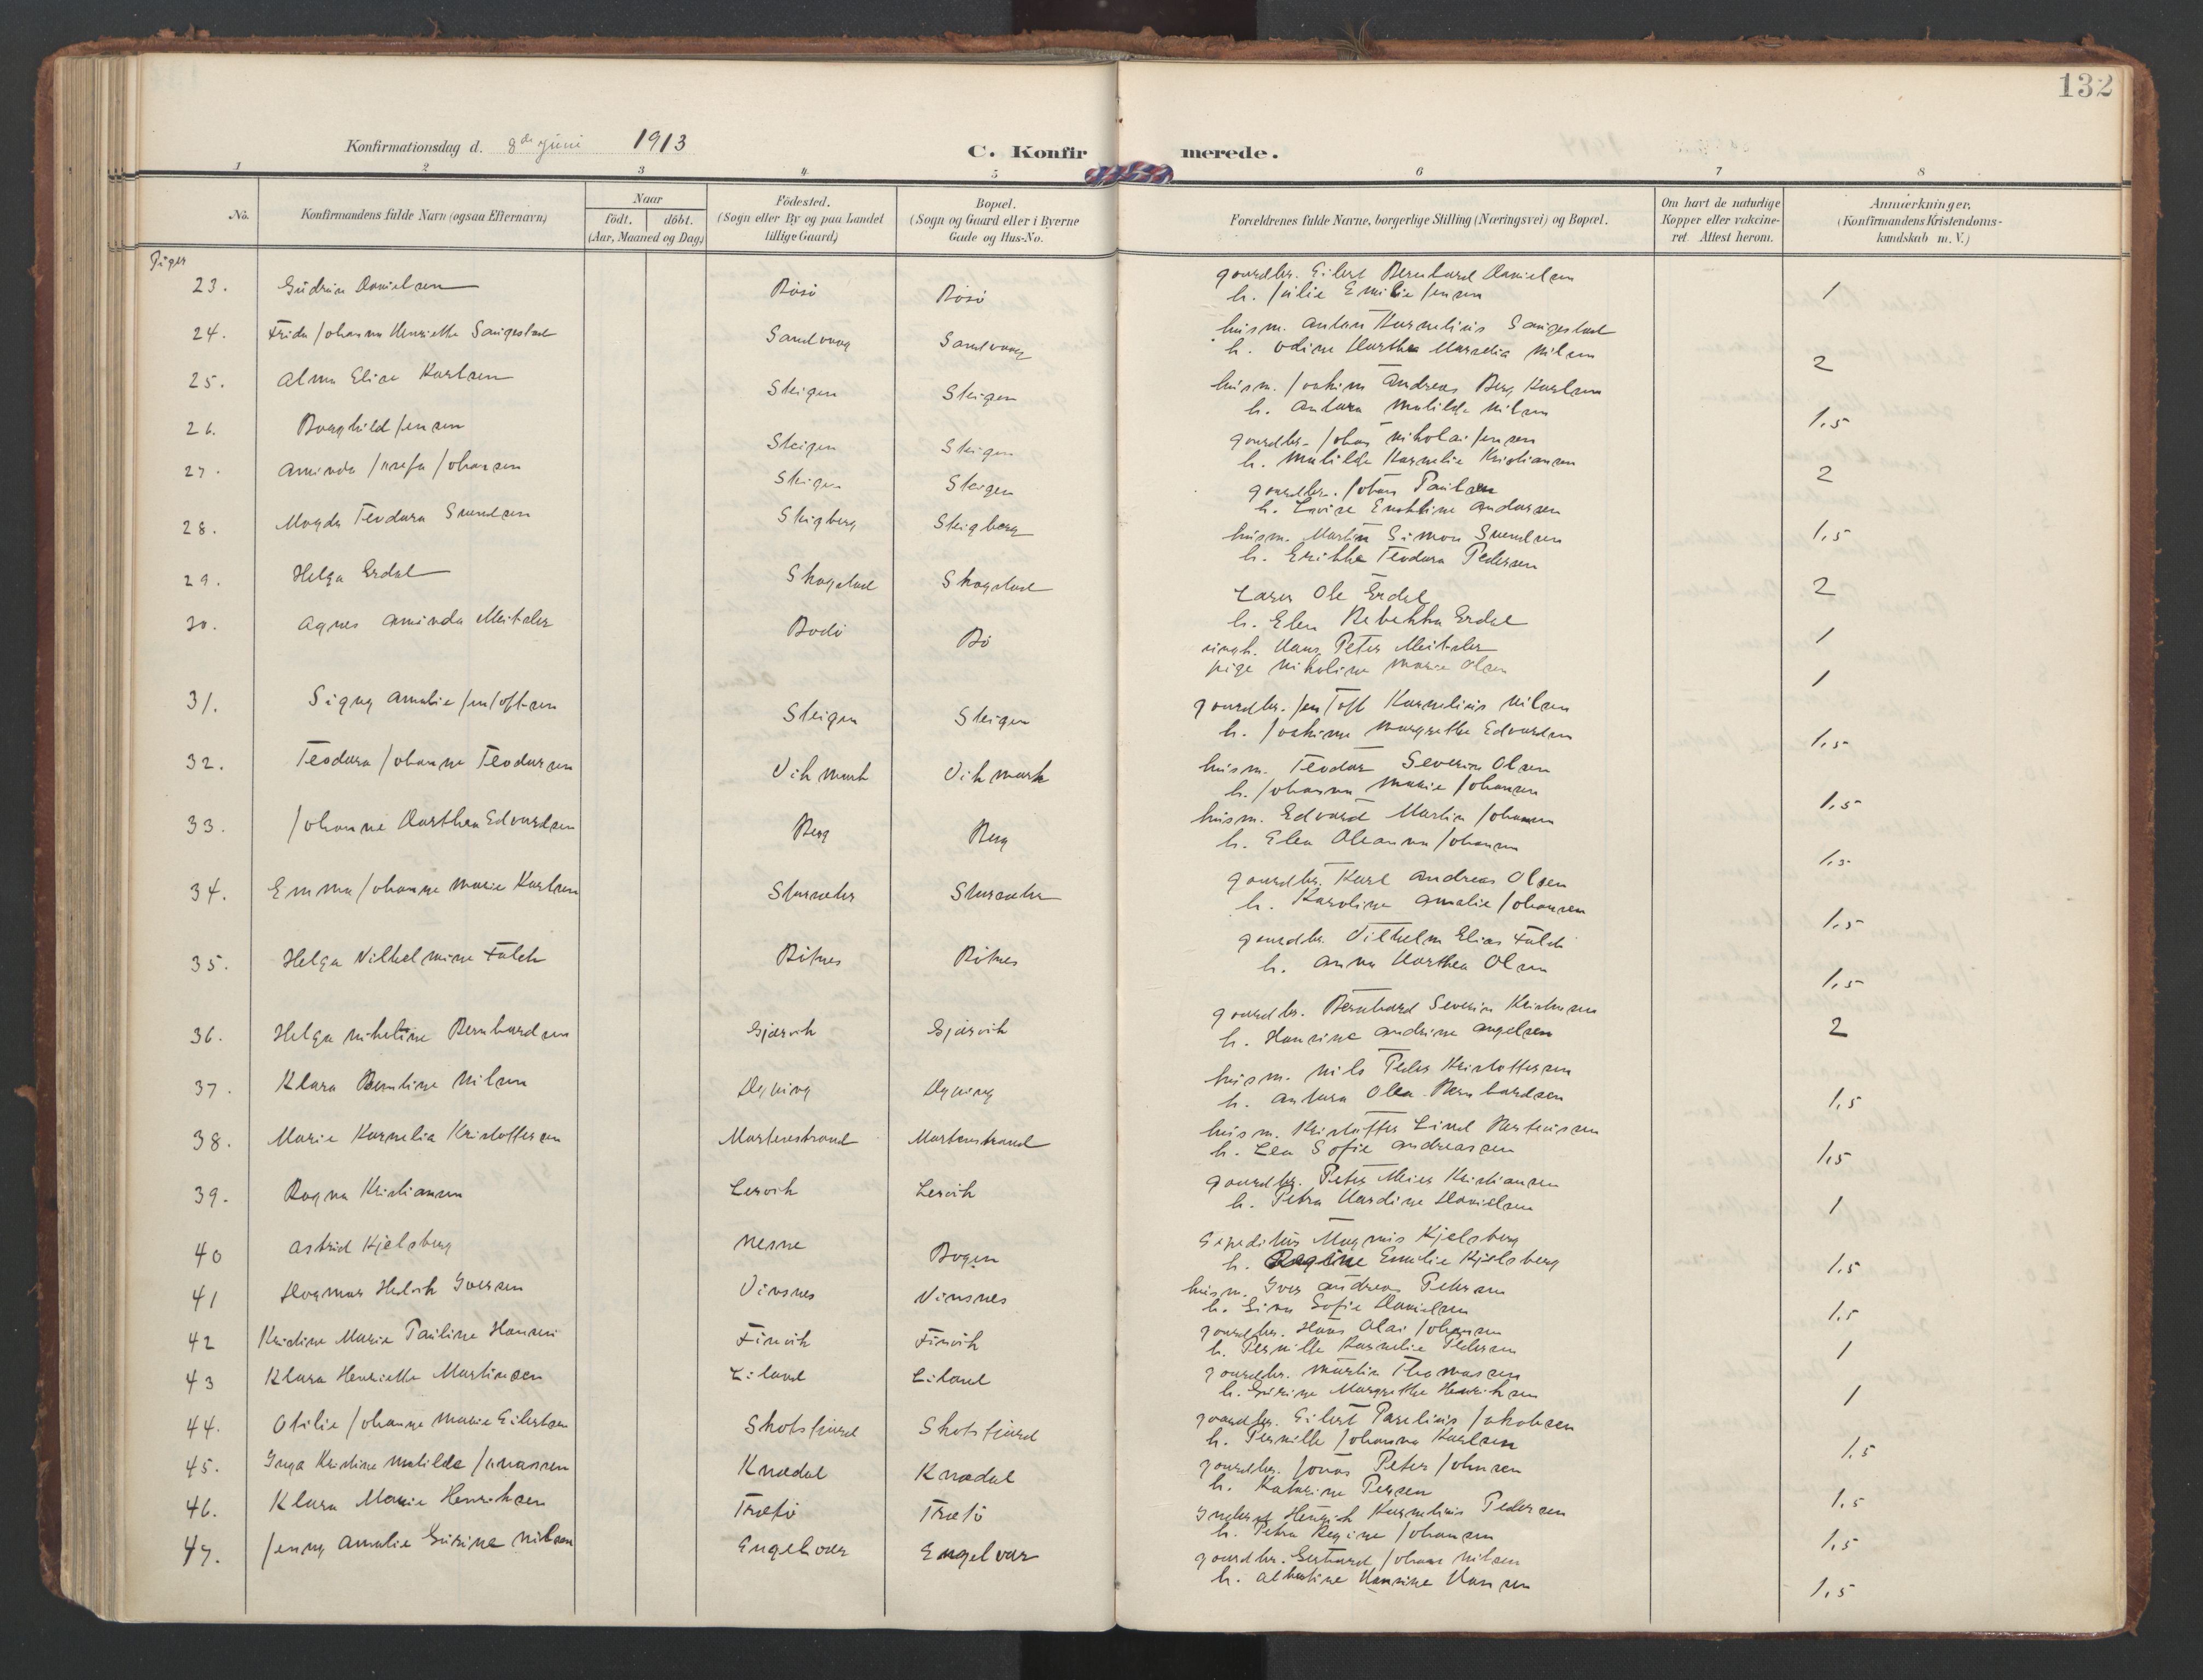 132
Konfirmationsdag d. 8de juni 1913
C. Konfirmerede.
1 2 3 4 5 6 7 8
No.
Konfirmandens fulde Navn (ogsaa Efternavn)
Naar
födt. döbt.
(Aar, Maaned og Dag)
Födested.
(Sogn eller By og paa Landet
tillige Gaard)
Bopæl.
(Sogn og Gaard eller i Byerne
Gade og Hus-No.
Forældrenes fulde Navne, borgerlige Stilling (Næringsvei) og Bopæl.
Om havt de naturlige
Kopper eller vakcine-
ret. Attest herom.
Anmærkninger,
(Konfirmandens Kristendoms-
kundskab m. V.)
Piger
23. Gudrun Danielsen Bösö Bösö gaardbr. Eilert Bernhard Danielsen 1
h. Julie Emilie Jensen
24. Frida Johanna Henriette Saugestad Sandvaag Sandvaag husm. Anton Kornelius Saugestad 2
h. Odine Marselia Nilsen
25. Alma Elise Karlsen Steigen Steigen husm. Joakim Andreas Berg Karlsen 1,5
h. Antora Matilde Nilsen
26. Borghild Jensen Steigen Steigen gaardbr. Johan Nikolai Jensen 2
h. Matilde Kornelie Kristiansen
27. Aminda Josefa Johansen Steigen Steigen gaardbr. Johan Paulsen 1,5
h. Andersen
28. Magda Teodora Svendsen Steigberg Steigberg husm. Martin Simon Svendsen 2
h. Erikka Teodora Pedersen
29. Helga Erdal Skagstad Skagstad Lærer Ole Erdal 1
h. Elen Rebekka Erdal
30. Agnes Aminda Meitsler Bodö Bö ungk. Hans Peter Meitsler 1
pige Nikoline Marie Olsen
31. Signy Amalie Jentoftsen Steigen Steigen gaardbr. Jentoft Kornelius Nilsen 1,5
h. Joakime Margrethe Edvardsen
32. Teodora Johanne Teodorsen Vikmark Vikmark husm. Teodor Severin Olsen 1,5
h. Johanna Marie Johansen
33. Johanne Dorthea Edvardsen Berg Berg husm. Edvard Martin Johansen 1,5
h. Elen Oleanna Johansen
34. Emma Johanne Marie Karlsen gaardbr. Karl Andreas Olsen 1,5
h. Karoline Amalie Johansen
35. Helga Vilhelmine Falch Bötnes Bötnes gaardbr. Vilhelm Elias Falch 1,5
h. Anna Olsen
36. Helga Nikoline Bernhardsen Gjærvik Gjærvik gaardbr. Bernhard Severin Kristensen 2
h. Hansine Andrine Angelsen
37. Klara Nilsen Dypving Dypving husm. Nils Peder Kristoffersen 1,5
h. Antora Olea Bernhardsen
38. Marie Kornelia Kristoffersen Mortenstrand Mortenstrand husm. Kristoffer Lind 1,5
h. Lea Sofie Andreassen
39. Ragna Kristiansen Lervik Lervik gaardbr. Peter Meier Kristiansen 1
h. Petra Danielsen
40 Astrid Kjelsberg Nesne Bogen Expeditör Magnus Kjelsberg 1,5
h. Regine Emilie Kjelsberg
41 Dagmar Iversen Vinsnes Vinsnes husm. Iver Andreas Petersen 1,5
h. Sofie Danielsen
42 Kristine Marie Pauline Hansen Finvik Finvik gaardbr. Hans Olai Johansen 1
h. Pernille Kornelie Pedersen
43 Klara Henriette Martinsen Liland Liland gaardbr. Martin Thomassen 1
h. Gurine Margrethe Henriksen
44. Otilie Johanne Marie Eilertsen Skotsfjord Skotsfjord gaardbr. Eilert Paselius Jakobsen 1,5
h. Pernille Johanna Karlsen
45. Inga Kristine Matilde Jonassen Knædal Knædal gaardbr. Jonas Peter Johnsen 1,5
h. Katarine Persen
46. Klara Marie Henriksen Trætö Trætö Inderst Henrik Kornelius Pedersen 1,5
h. Petra Regine Johansen
47. Jenny Amalie Gurine Nilsen Engelvær Engelvær gaardbr. Gerhard Johan Nilsen 1,5
h. Albertine Hansine Hansen